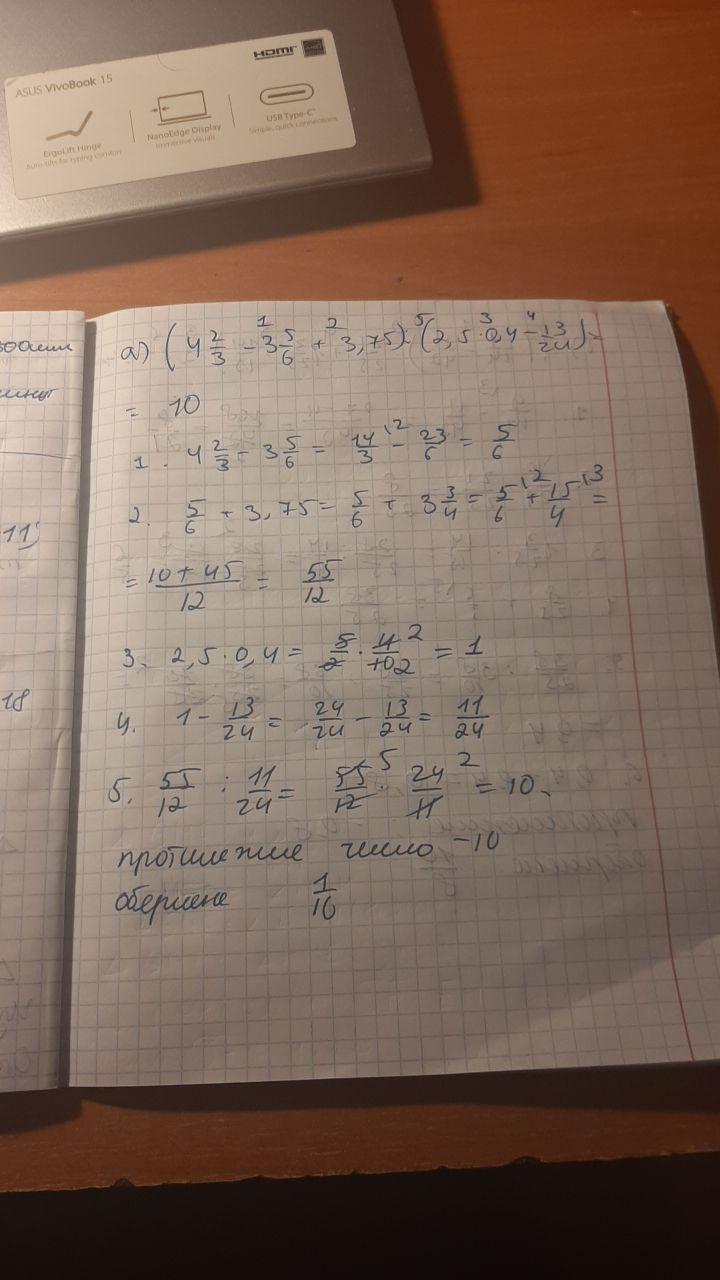 HDMI
ASUS VivoBook 15
ErgoLift Hinge
Auto-tilts for typing comfort
NanoEdge Display
Immersive visuals
USB Type-C™
Simple, quick connections
11;
18
а) (4 2/3 - 3 5/6 + 3,75) : (2,5 · 0,4 - 13/24) =
1 2 5 3 4
= 10
1. 4 2/3 - 3 5/6 = 14/3 ^2 - 23/6 = 5/6
2. 5/6 + 3,75 = 5/6 + 3 3/4 = 5/6 ^2 + 15/4 ^3 =
= (10 + 45)/12 = 55/12
3. 2,5 · 0,4 = 5/2 · 4/10 2 2 = 1
4. 1 - 13/24 = 24/24 - 13/24 = 11/24
5. 55/12 : 11/24 = 55/12 5 · 24/11 2 = 10.
протилежне число -10
обернене 1/10